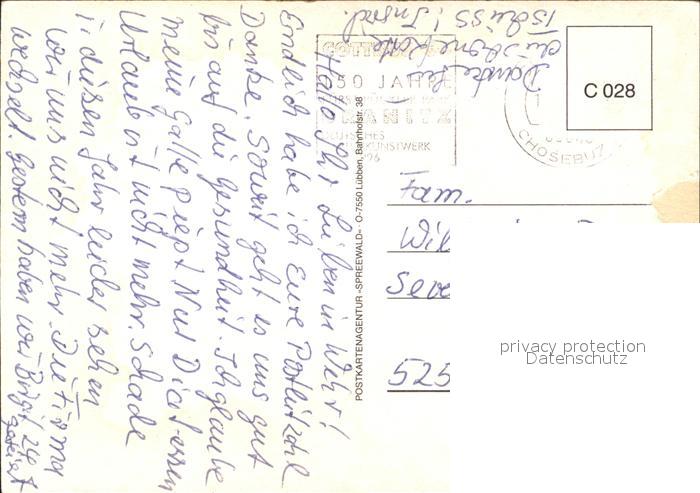 Hallo Ihr Lieben in Wehr!
Endlich habe ich Eure Postleitzahl
Danke. Soweit geht es uns gut
bis auf die Gesundheit. Ich glaube
meine Galle piept Nur Diät essen
Urlaub ist nicht mehr. Schade
in diesen Jahr leider sehen
wir uns nicht mehr. Die Firma
wechselt. Gestern haben wir Birgit 24
gefeiert
Danke für
die schöne Karte
Tschüss!
50 JAHRE
DEUTSCHES
KUNSTWERK
CHOSEBUZ
C 028
POSTKARTENAGENTUR »SPREEWALD« · O-7550 Lübben, Bahnhofstr. 38
Fam.
Wil
Seve
525
privacy protection
Datenschutz